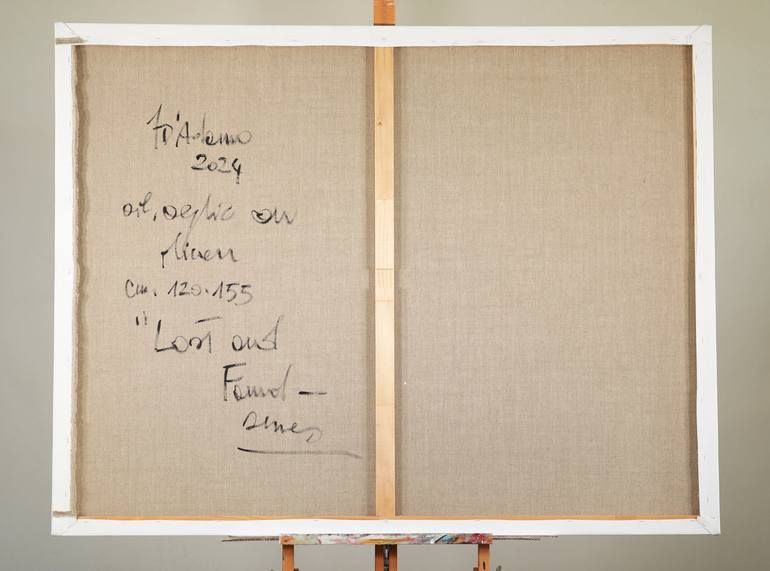 D'Adamo
2024
oil, on
linen
cm. 120.155
"Lost and
Found —
series